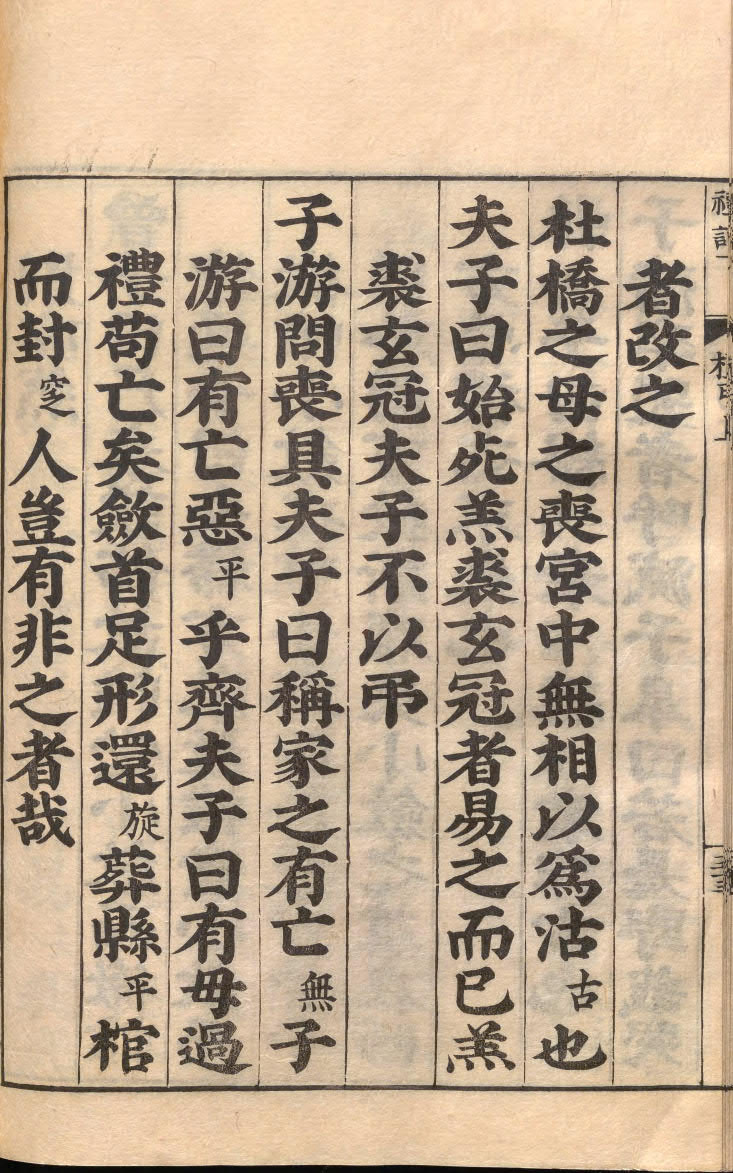 者改之
杜橋之母之喪宮中無相以爲沽古也
夫子曰始死羔裘玄冠者易之而已羔
裘玄冠夫子不以弔
子游問喪具夫子曰稱家之有亡無子
游曰有亡惡平乎齊夫子曰有毋過
禮苟亡矣斂首足形還旋葬縣平棺
而封窆人豈有非之者哉